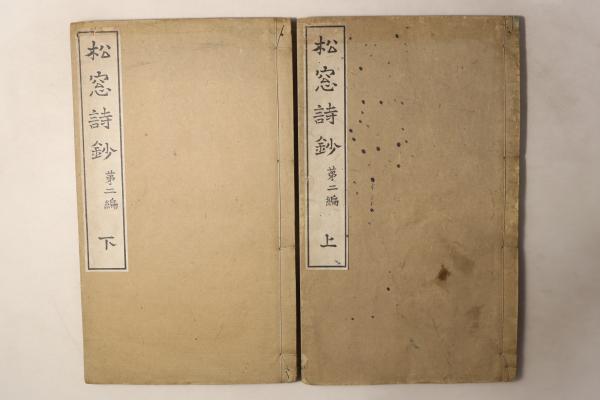 松窓詩鈔 第二編 上
松窓詩鈔 第二編 下